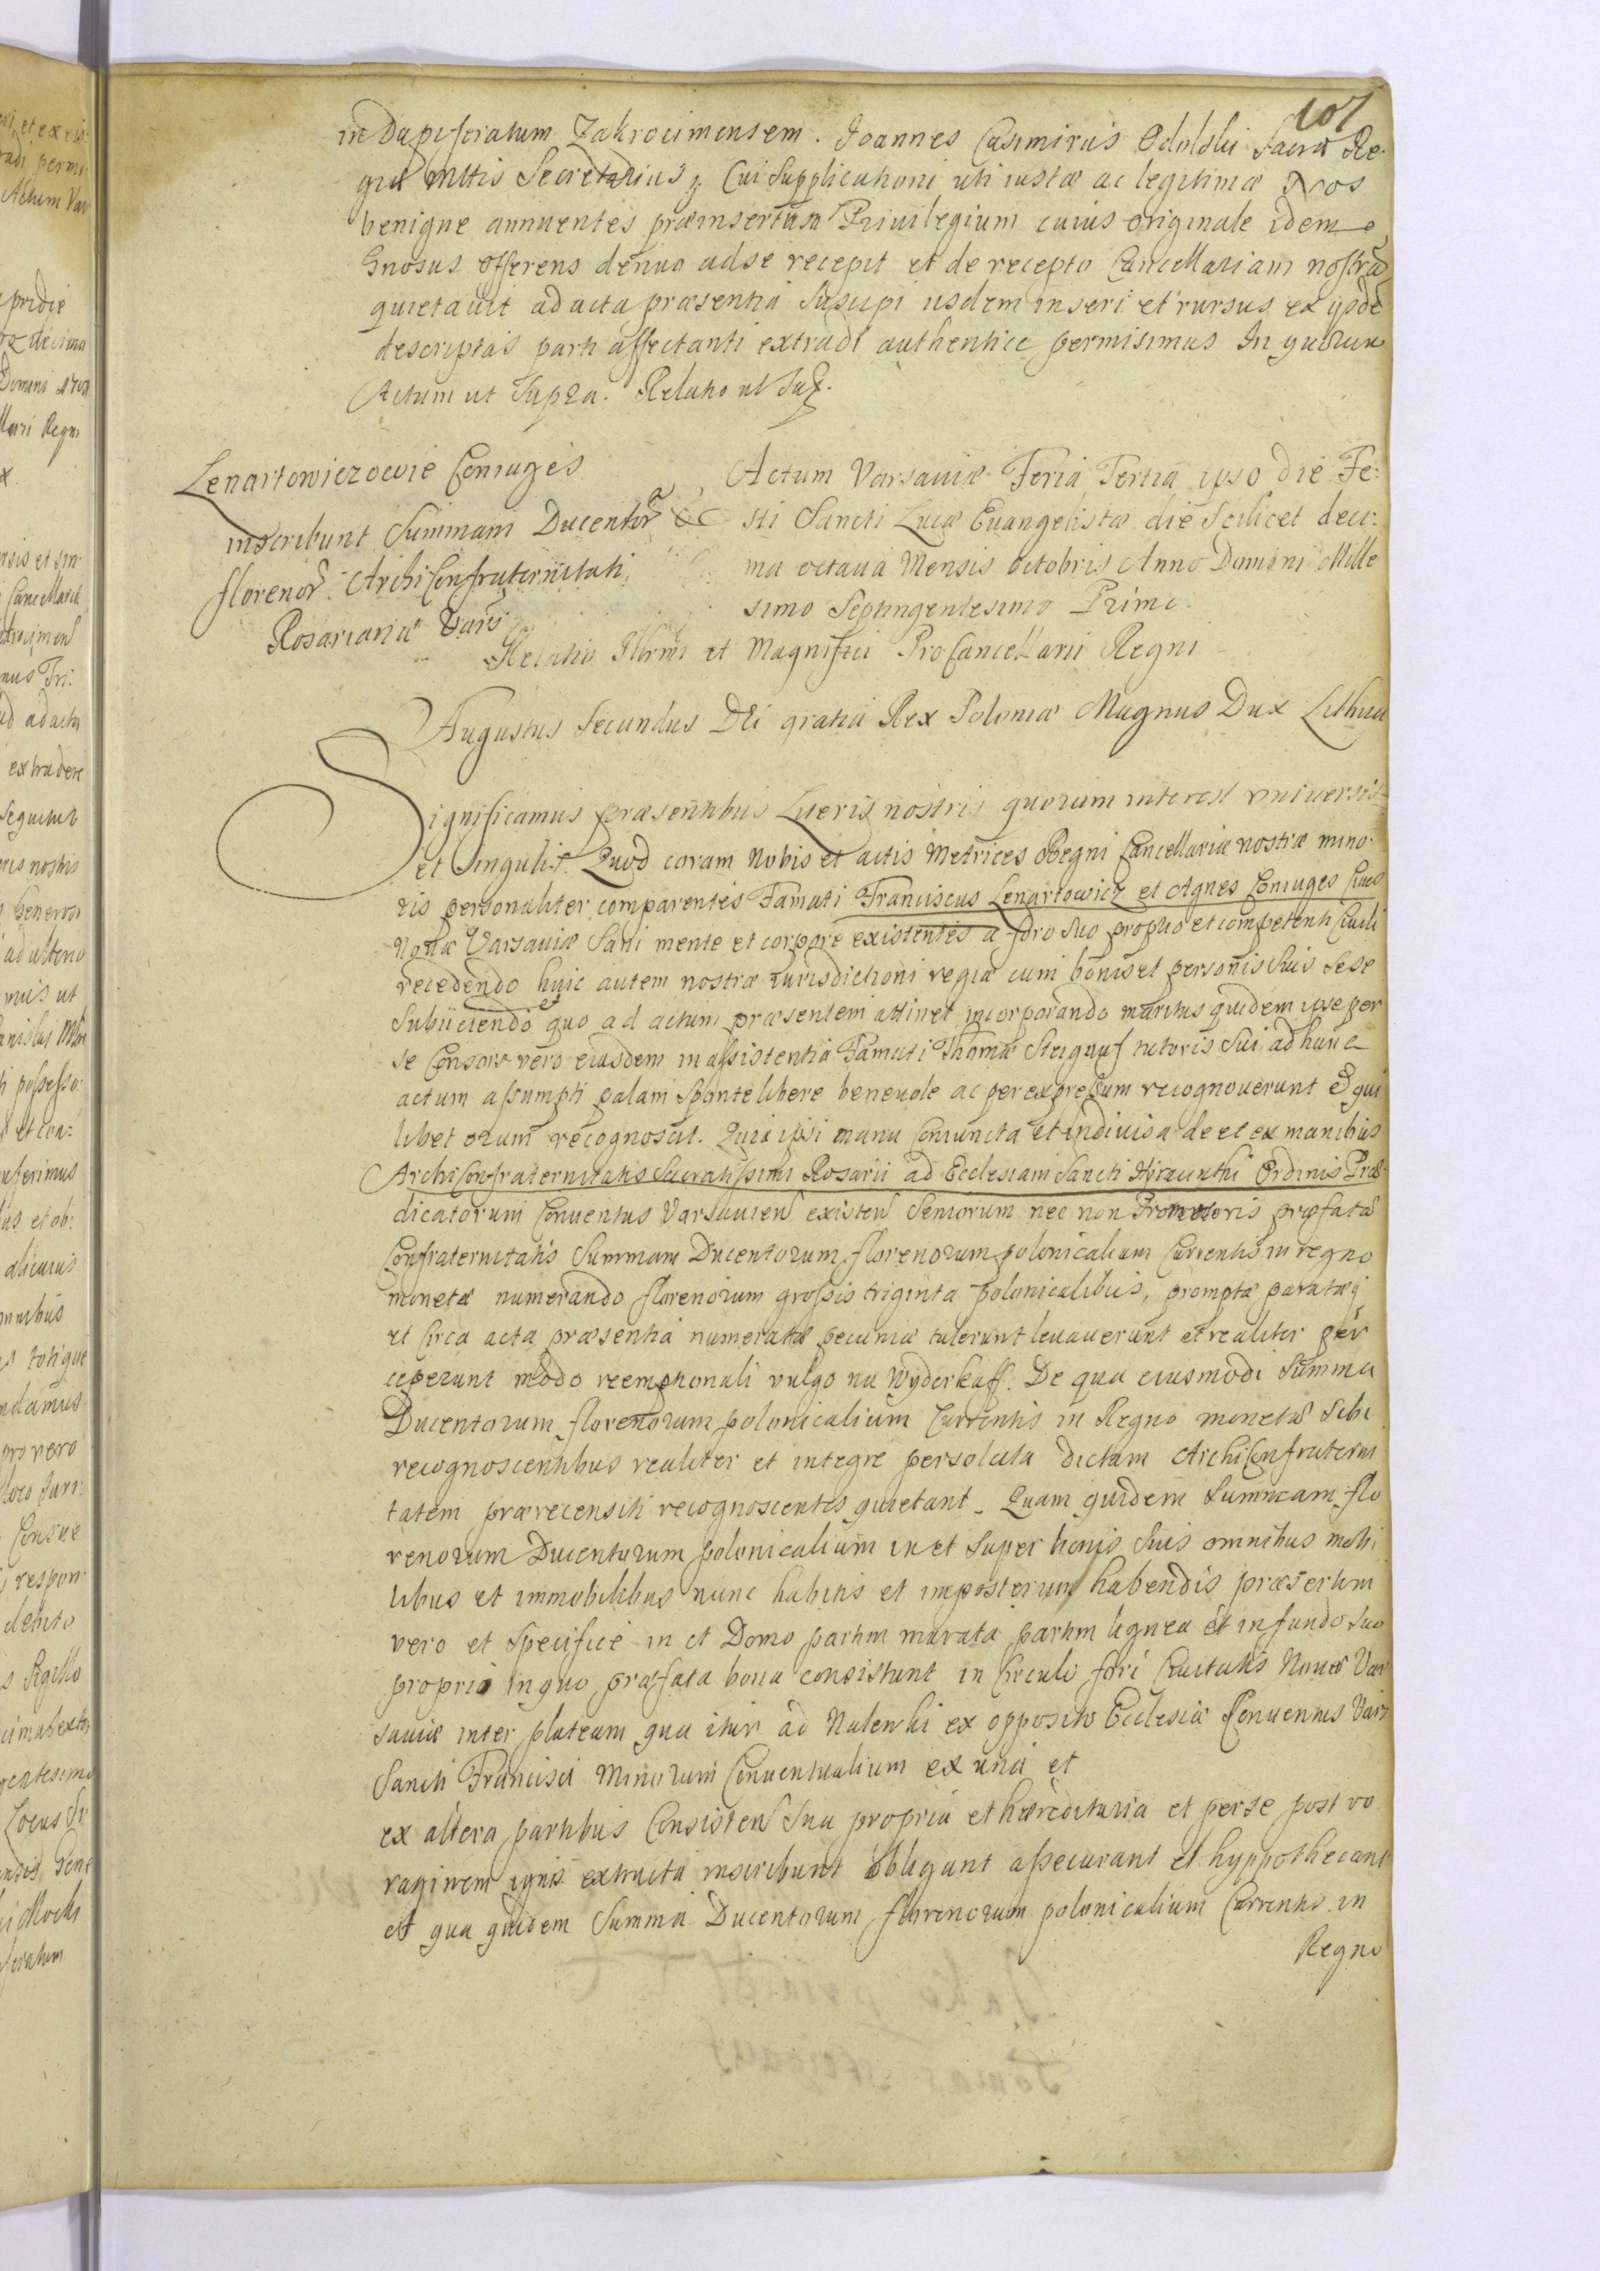 107
in Dapiferatum Zakrocimensem. Joannes Casimirus Sacræ Re-
giæ Mttis Secretarius. Cui Supplicationi uti iustæ ac legitimæ Nos
benigne annuentes præinsertum Privilegium cuius originale idem
Gnosus offerens denuo ad se recepit et de recepto Cancellariam nostrã
quietavit ad acta præsentia Suscipi iisdem inseri et rursus ex ijsdẽ
descriptas parti affectanti extradi authentice permisimus In quorum
Actum ut Supra. Relatio ut Sup.
Lenartowiczowie Coniuges
inscribunt Summam Ducentor̃
florenor̃ Archi Confraternitati
Rosarianæ Vars
Actum Varsaviæ Feria Tertia ipso die Fe:
sti Sancti Lucæ Evangelistæ die Scilicet deci:
ma octava Mensis Octobris Anno Domini Mille
simo Septingentesimo Primo.
Relatio Illrmi et Magnifici ProCancellarii Regni
Augustus Secundus Dei gratia Rex Poloniæ Magnus Dux Lithua
Significamus præsentibus Lrteris nostris quorum interest universis
et Singulis. Quod coram Nobis et actis Metrices Regni Cancellariæ nostræ mino-
ris personaliter comparentes Famati Franciscus Lenartowicz et Agnes Coniuges Cives
Novæ Varsaviæ Sani mente et corpore existentes a foro Suo proprio et competenti Civili
recedendo huic autem nostræ Iurisdictioni regiæ cum bonis et personis Suis Sese
Subiiciendo et quo ad actum præsentem attinet incorporando maritus quidem ipse per
se Consors vero eiusdem in assistentia Famati Thomæ tutoris Sui ad hunc
actum assumpti palam Sponte libere benevole ac per expressum recognoverunt Et qui
libet eorum recognoscit. Quia ipsi manu coniuncta et indivisa de et ex manibus
Archi Confraternitatis Sacratissimi Rosarii ad Ecclesiam Sancti Hyacinthi Ordinis Præ-
dicatorum Conventus Varsavien existen Seniorum nec non Promotoris præfatæ
Confraternitatis Summam Ducentorum florenorum polonicalium Currentis in regno
monetæ numerando florenorum grossis triginta polonicalibus, promptæ paratæq
et circa acta præsentia numeratæ pecuniæ tulerunt levaverunt et realiter per
ceperunt modo reemptionali vulgo na Wyderkaff. De qua eiusmodi Summa
Ducentorum florenorum polonicalium Currentis in Regno monetæ Sibi
recognoscentibus realiter et integre persoluta dictam ArchiConfraterni
tatem prærecensiti recognoscentes quietant. Quam quidem Summam flo
renorum Ducentorum polonicalium in et Super bonis Suis omnibus mobi
libus et immobilibus nunc habitis et imposterum habendis præsertim
vero et Specifice in et Domo partim murata partim lignea et in fundo Suo
proprio in quo præfata bona consistunt in Circulo fori Civitatis Novæ Var
saviæ inter plateam qua itur ad Nalewki ex opposito Ecclesiæ Conventus Vars
Sancti Francisci Minorum Conventualium ex una et
ex altera partibus Consisten Sua propria et hæreditaria et per se post vo
raginem ignis extructa inscribunt obligant assecurant et hyppothecant
et qua quidem Summa Ducentorum florenorum polonicalium Currentis in
Regno